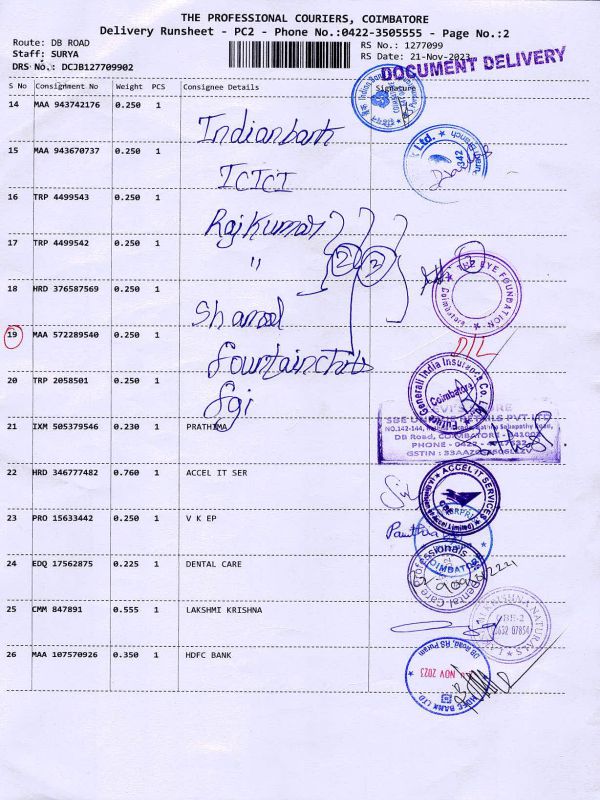 THE PROFESSIONAL COURIERS, COIMBATORE
Delivery Runsheet - PC2 - Phone No.:0422-3505555 - Page No.:2
Route: DB ROAD
Staff: SURYA
DRS No.: DCJB127709902
RS No.: 1277099
RS Date: 21-Nov-2023
DOCUMENT DELIVERY
S No Consignment No Weight PCS Consignee Details Signature
14 MAA 943742176 0.250 1 Indianbank
15 MAA 943670737 0.250 1 ICICI
16 TRP 4499543 0.250 1 Rajkumar
17 TRP 4499542 0.250 1 "
2 2
18 HRD 376587569 0.250 1
THE EYE FOUNDATION
Coimbatore
19 MAA 572289540 0.250 1
D/L
20 TRP 2058501 0.250 1
Future Generali India Insurance Co. Ltd
Coimbatore
21 IXM 505379546 0.230 1 PRATHIMA
DB Road, COIMBATORE - 641002
PHONE - 0422 -
GSTIN :
22 HRD 346777482 0.760 1 ACCEL IT SER
ACCEL IT SERVICES
23 PRO 15633442 0.250 1 V K EP
24 EDQ 17562875 0.225 1 DENTAL CARE
Dental Care Professionals
25 CMM 847891 0.555 1 LAKSHMI KRISHNA
KRISHNA NATURALS
CBE-2
26 MAA 107570926 0.350 1 HDFC BANK
DB Road, RS Puram
NOV 2023
HDFC BANK LTD